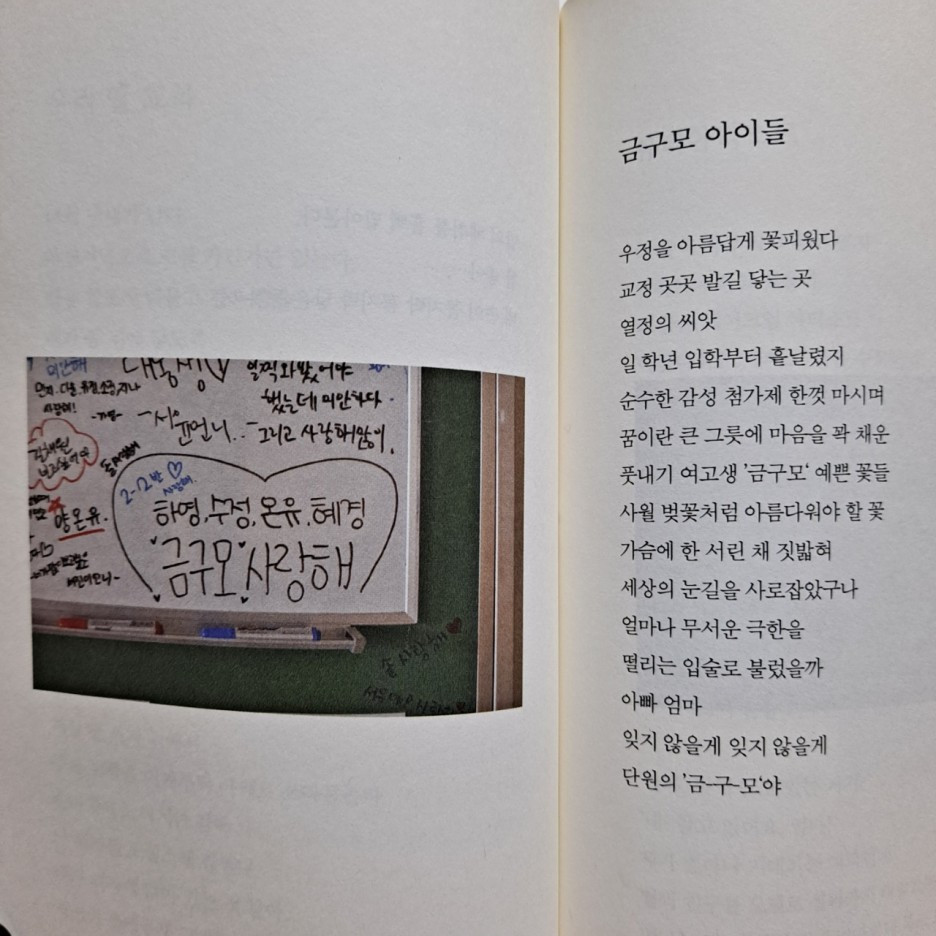 미안해
대롱생♡
일찍 와봤어야
민지, 다롱, 유림, 소윤, 지나
사랑해!
했는데 미안하다.
-서윤언니..-
그리고 사랑해많이.
2-2반♡
사랑해.
하영, 수정, 온유, 혜경
양온유.
금구모 사랑해
금구모 아이들
우정을 아름답게 꽃피웠다
교정 곳곳 발길 닿는 곳
열정의 씨앗
일 학년 입학부터 흩날렸지
순수한 감성 첨가제 한껏 마시며
꿈이란 큰 그릇에 마음을 꽉 채운
풋내기 여고생 '금구모' 예쁜 꽃들
사월 벚꽃처럼 아름다워야 할 꽃
가슴에 한 서린 채 짓밟혀
세상의 눈길을 사로잡았구나
얼마나 무서운 극한을
떨리는 입술로 불렀을까
아빠 엄마
잊지 않을게 잊지 않을게
단원의 '금-구-모'야